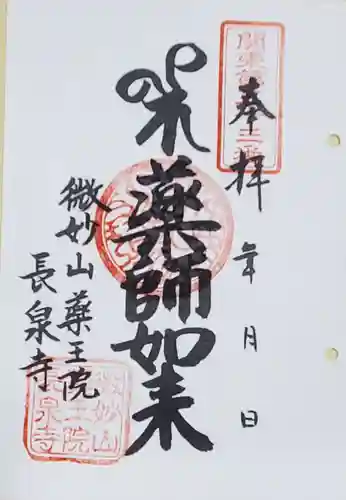 奉拝
年月日
薬師如来
微妙山薬王院
長泉寺
微妙山
薬王院
長泉寺